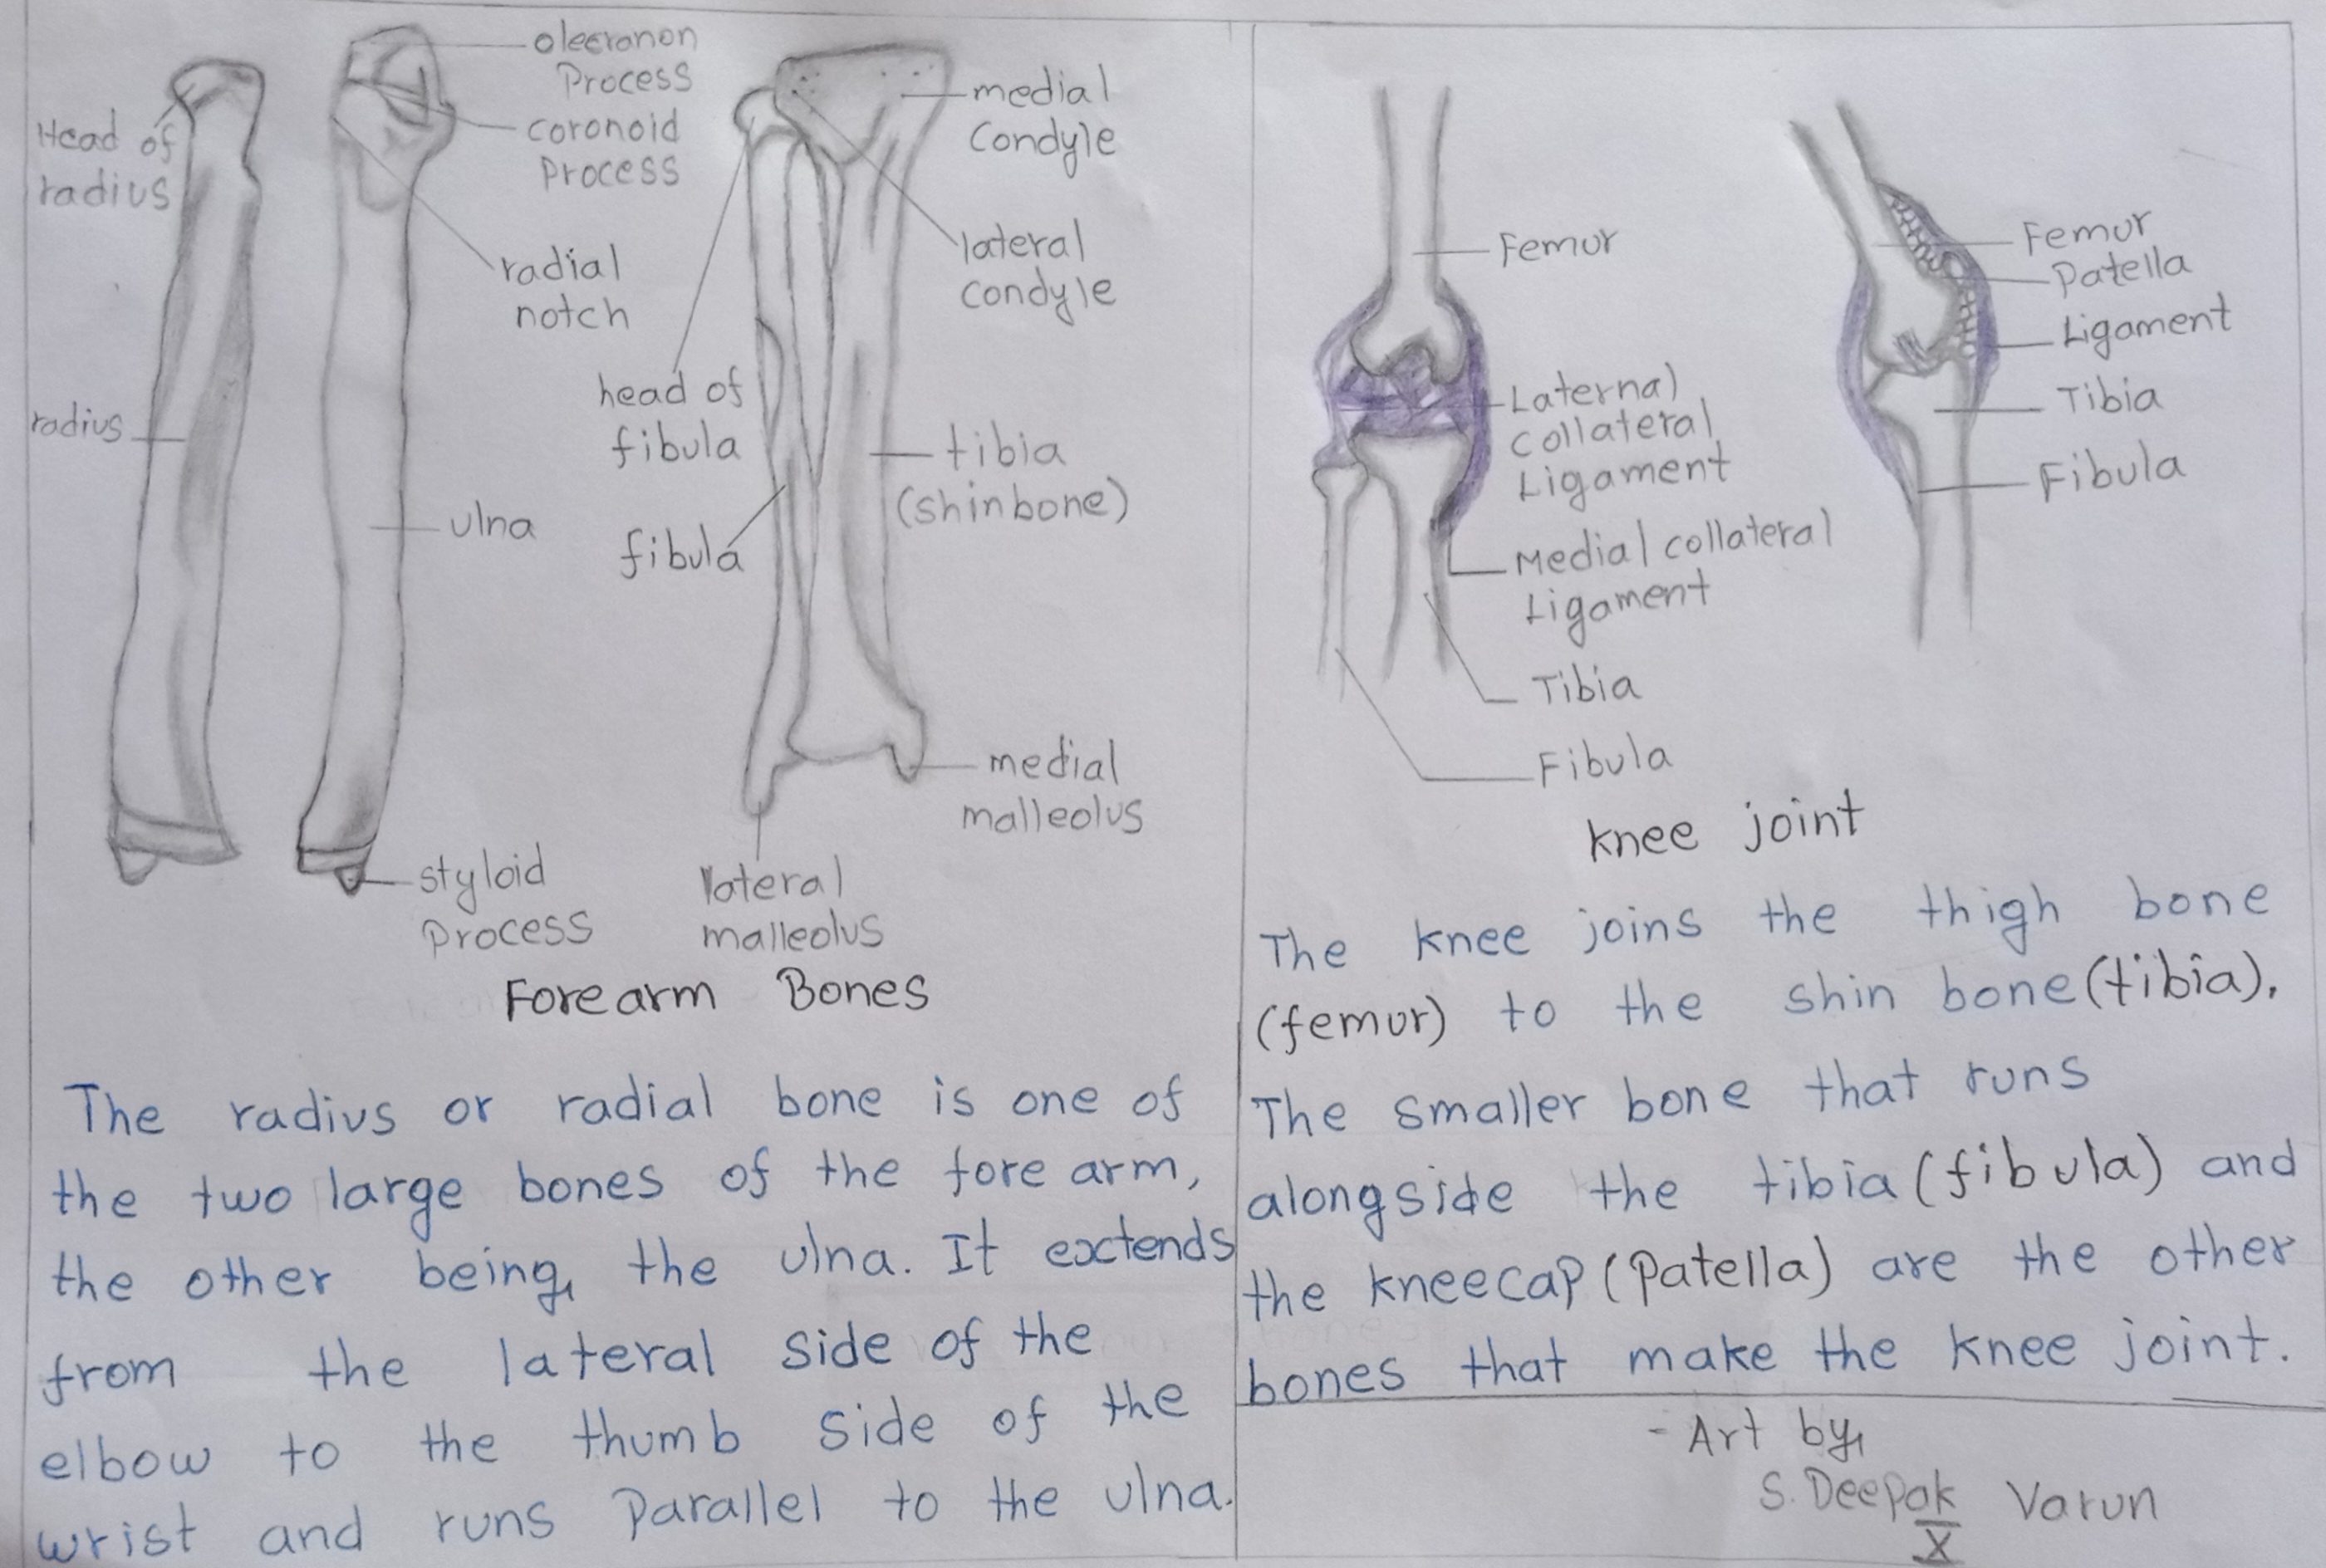 olecranon
Process
coronoid
Process
Head of
radius
radial
notch
radius
ulna
styloid
Process
medial
Condyle
lateral
condyle
head of
fibula
tibia
(shinbone)
fibula
medial
malleolus
lateral
malleolus
Forearm Bones
The radius or radial bone is one of
the two large bones of the fore arm,
the other being, the ulna. It extends
from the lateral side of the
elbow to the thumb side of the
wrist and runs Parallel to the ulna.
Femur
Laternal
collateral
Ligament
Medial collateral
Ligament
Tibia
Fibula
Femur
Patella
Ligament
Tibia
Fibula
knee joint
The knee joins the thigh bone
(femur) to the shin bone (tibia).
The smaller bone that runs
alongside the tibia (fibula) and
the kneecap (Patella) are the other
bones that make the knee joint.
- Art by,
S. Deepak Varun
X